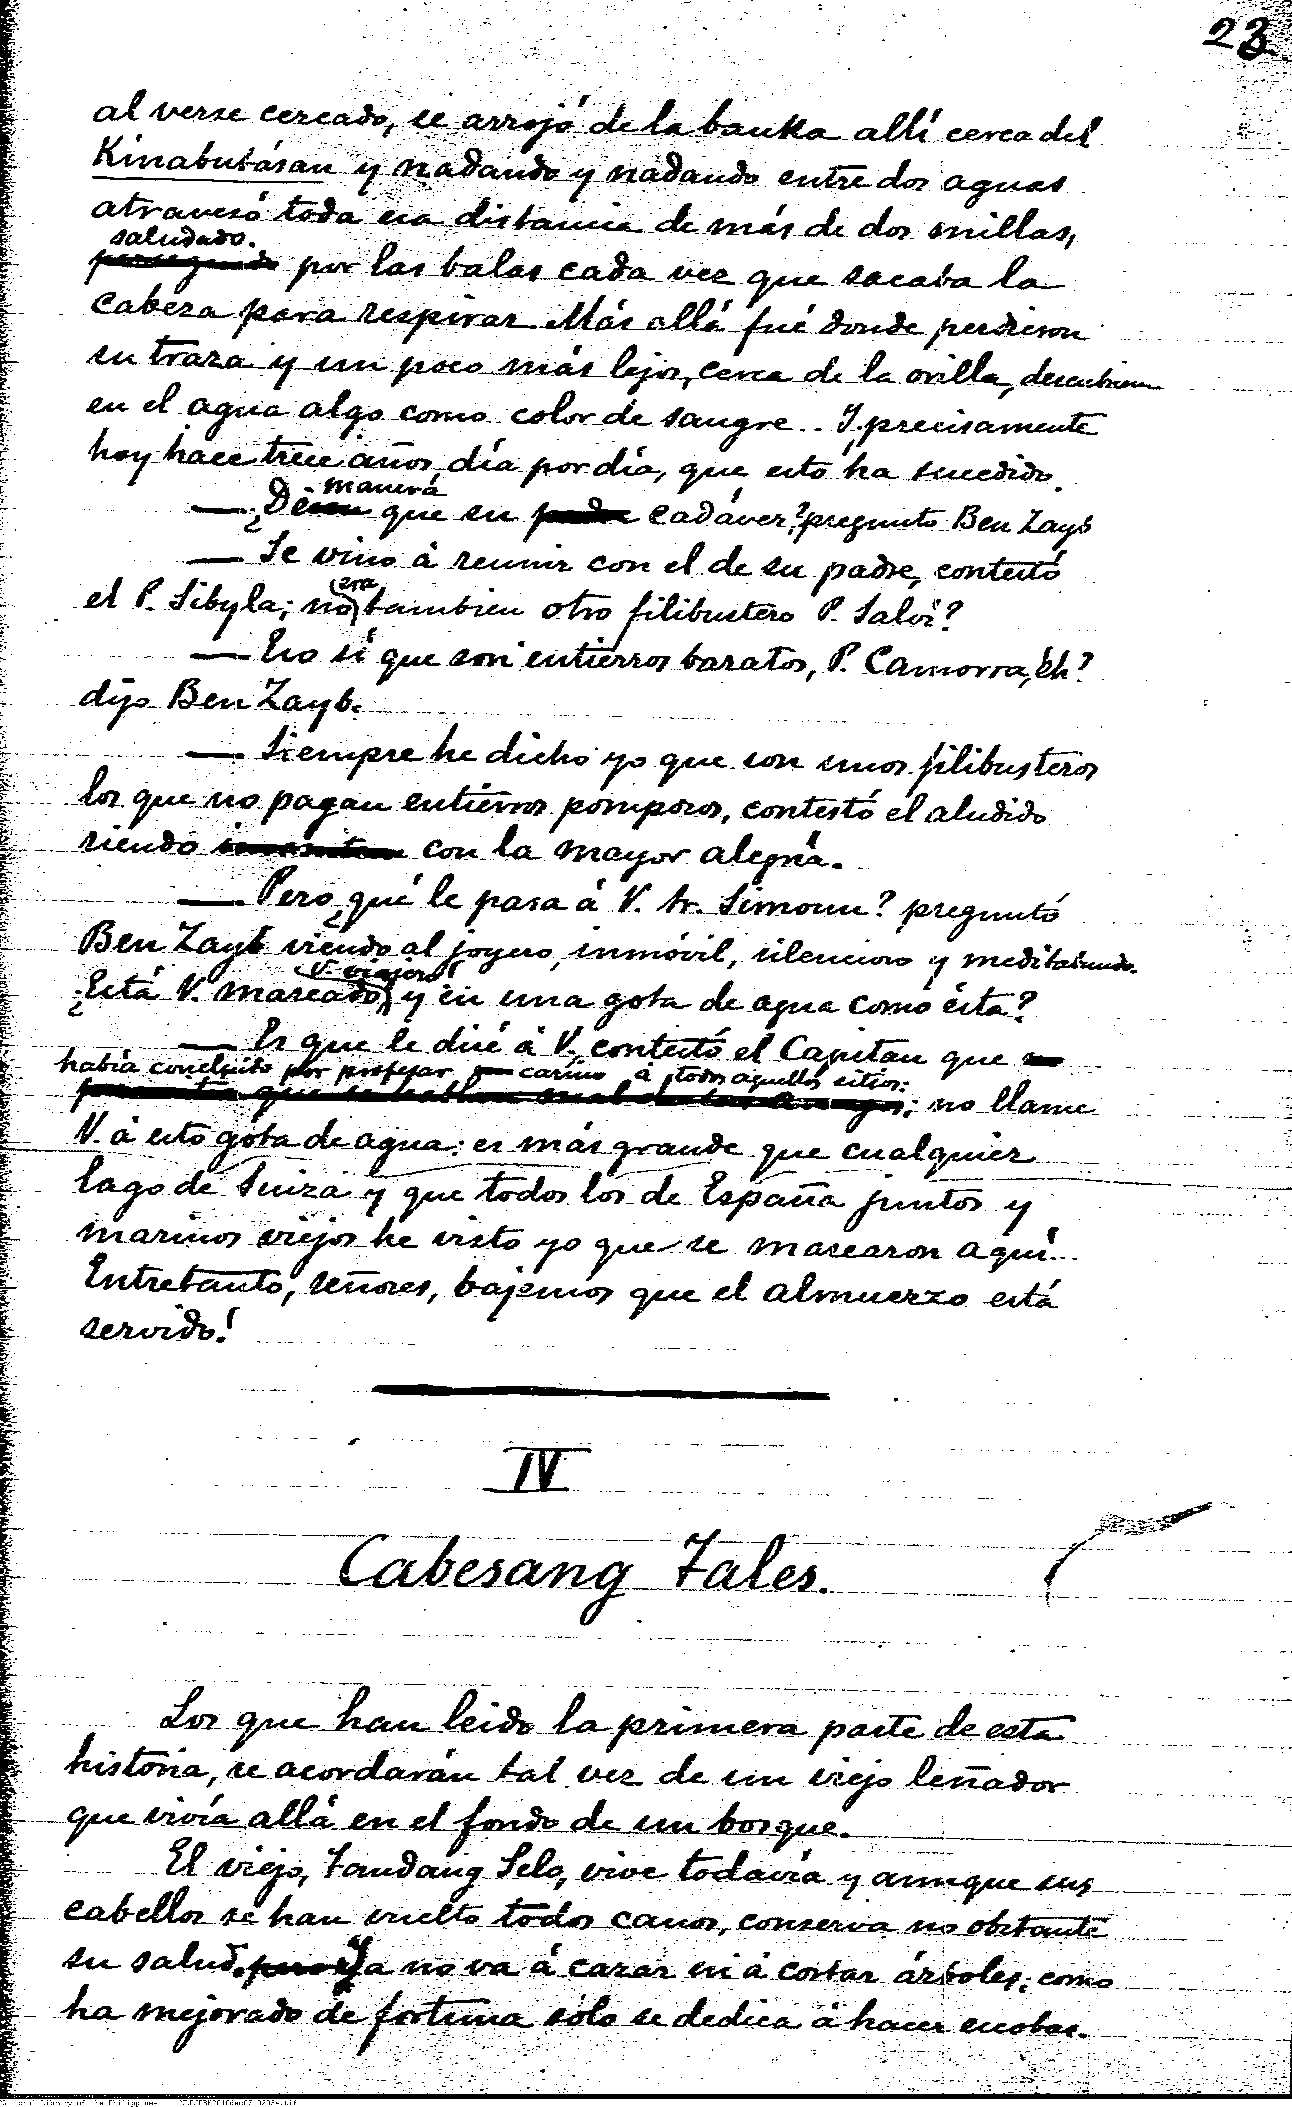 23
al verse cercado, se arrojó de la banka allí cerca del
Kinabutásan y nadando y nadando entre dos aguas
atravesó toda esa distancia de más de dos millas,
saludado.
perseguido por las balas cada vez que sacaba la
cabeza para respirar. Más allá fué donde perdieron
su traza y un poco más lejos, cerca de la orilla, descubrieron
en el agua algo como color de sangre... Y precisamente
hoy hace trece años, día por día, que esto ha sucedido.
manera
— ¿De que su cadáver? preguntó Ben Zayb
— Se vino á reunir con el de su padre, contestó
era
el P. Sibyla; no tambien otro filibustero P. Salví?
— Eso sí que son entierros baratos, P. Camorra, eh?
dijo Ben Zayb.
— Siempre he dicho yo que son unos filibusteros
los que no pagan entierros pomposos, contestó el aludido
riendo con la mayor alegría.
— Pero ¿qué le pasa á V. Sr. Simoun? preguntó
Ben Zayb viendo al joyero, inmóvil, silencioso y meditabundo.
V. viajero!
¿Está V. mareado, y en una gota de agua como ésta?
— Es que le diré á V., contestó el Capitan que
había concluido por profesar cariño á todos aquellos sitios:
; no llame
V. á esto gota de agua: es más grande que cualquier
lago de Suiza y que todos los de España juntos y
marinos viejos he visto yo que se marearon aquí...
Entretanto, señores, bajemos que el almuerzo está
servido!
IV
Cabesang Tales.
Los que han leido la primera parte de esta
historia, se acordarán tal vez de un viejo leñador
que vivía allá en el fondo de un bosque.
El viejo, Tandang Selo, vive todavía y aunque sus
cabellos se han vuelto todos canos, conserva no obstante
su salud. Ya no va á cazar ni á cortar árboles; como
ha mejorado de fortuna sólo se dedica á hacer escobas.